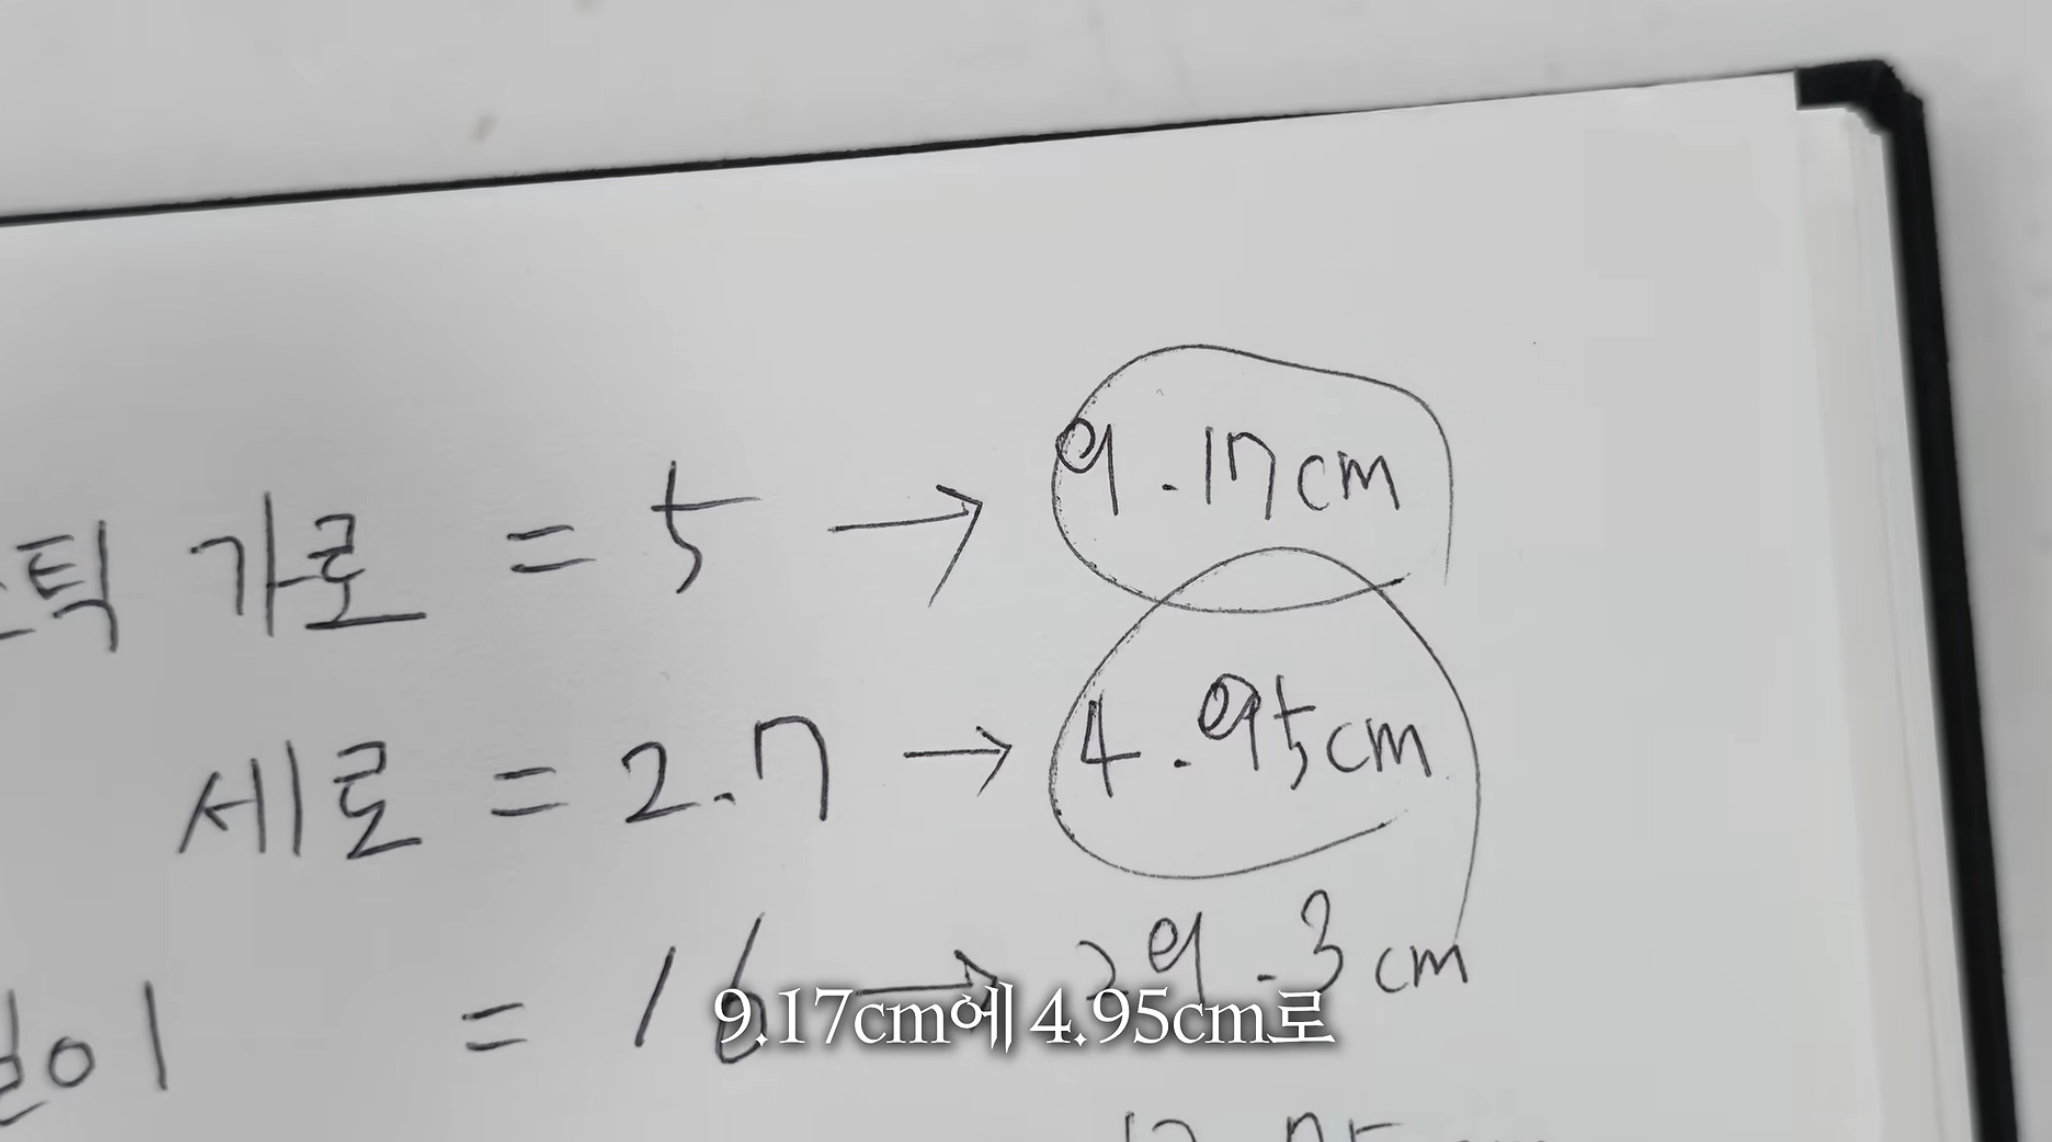 스틱 가로 = 5 → 9.17cm
세로 = 2.7 → 4.95cm
길이 = 16 → 29.3cm
9.17cm에 4.95cm로